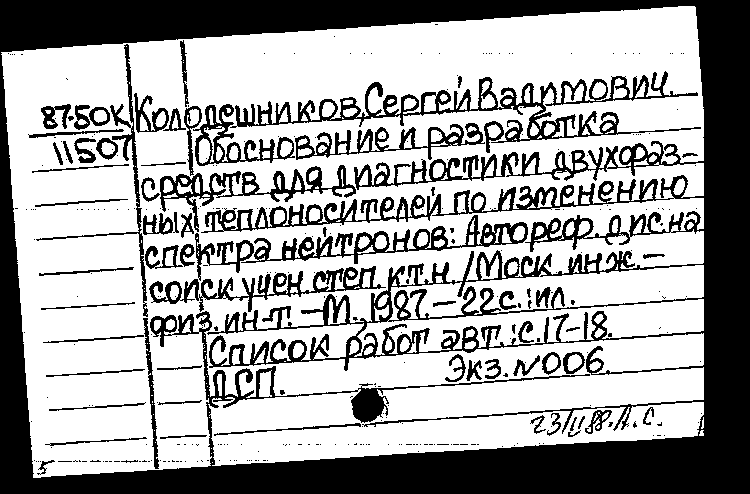 87-50К Колодешников, Сергей Вадимович.
11507 Обоснование и разработка
средств для диагностики двухфаз-
ных теплоносителей по изменению
спектра нейтронов: Автореф. дис. на
соиск. учен. степ. к.т.н. / Моск. инж.-
физ. ин-т. - М., 1987. - 22 с.: ил.
Список работ авт.: с. 17-18.
ДСП. Экз. N 006.
23/II 88. А. С.
5